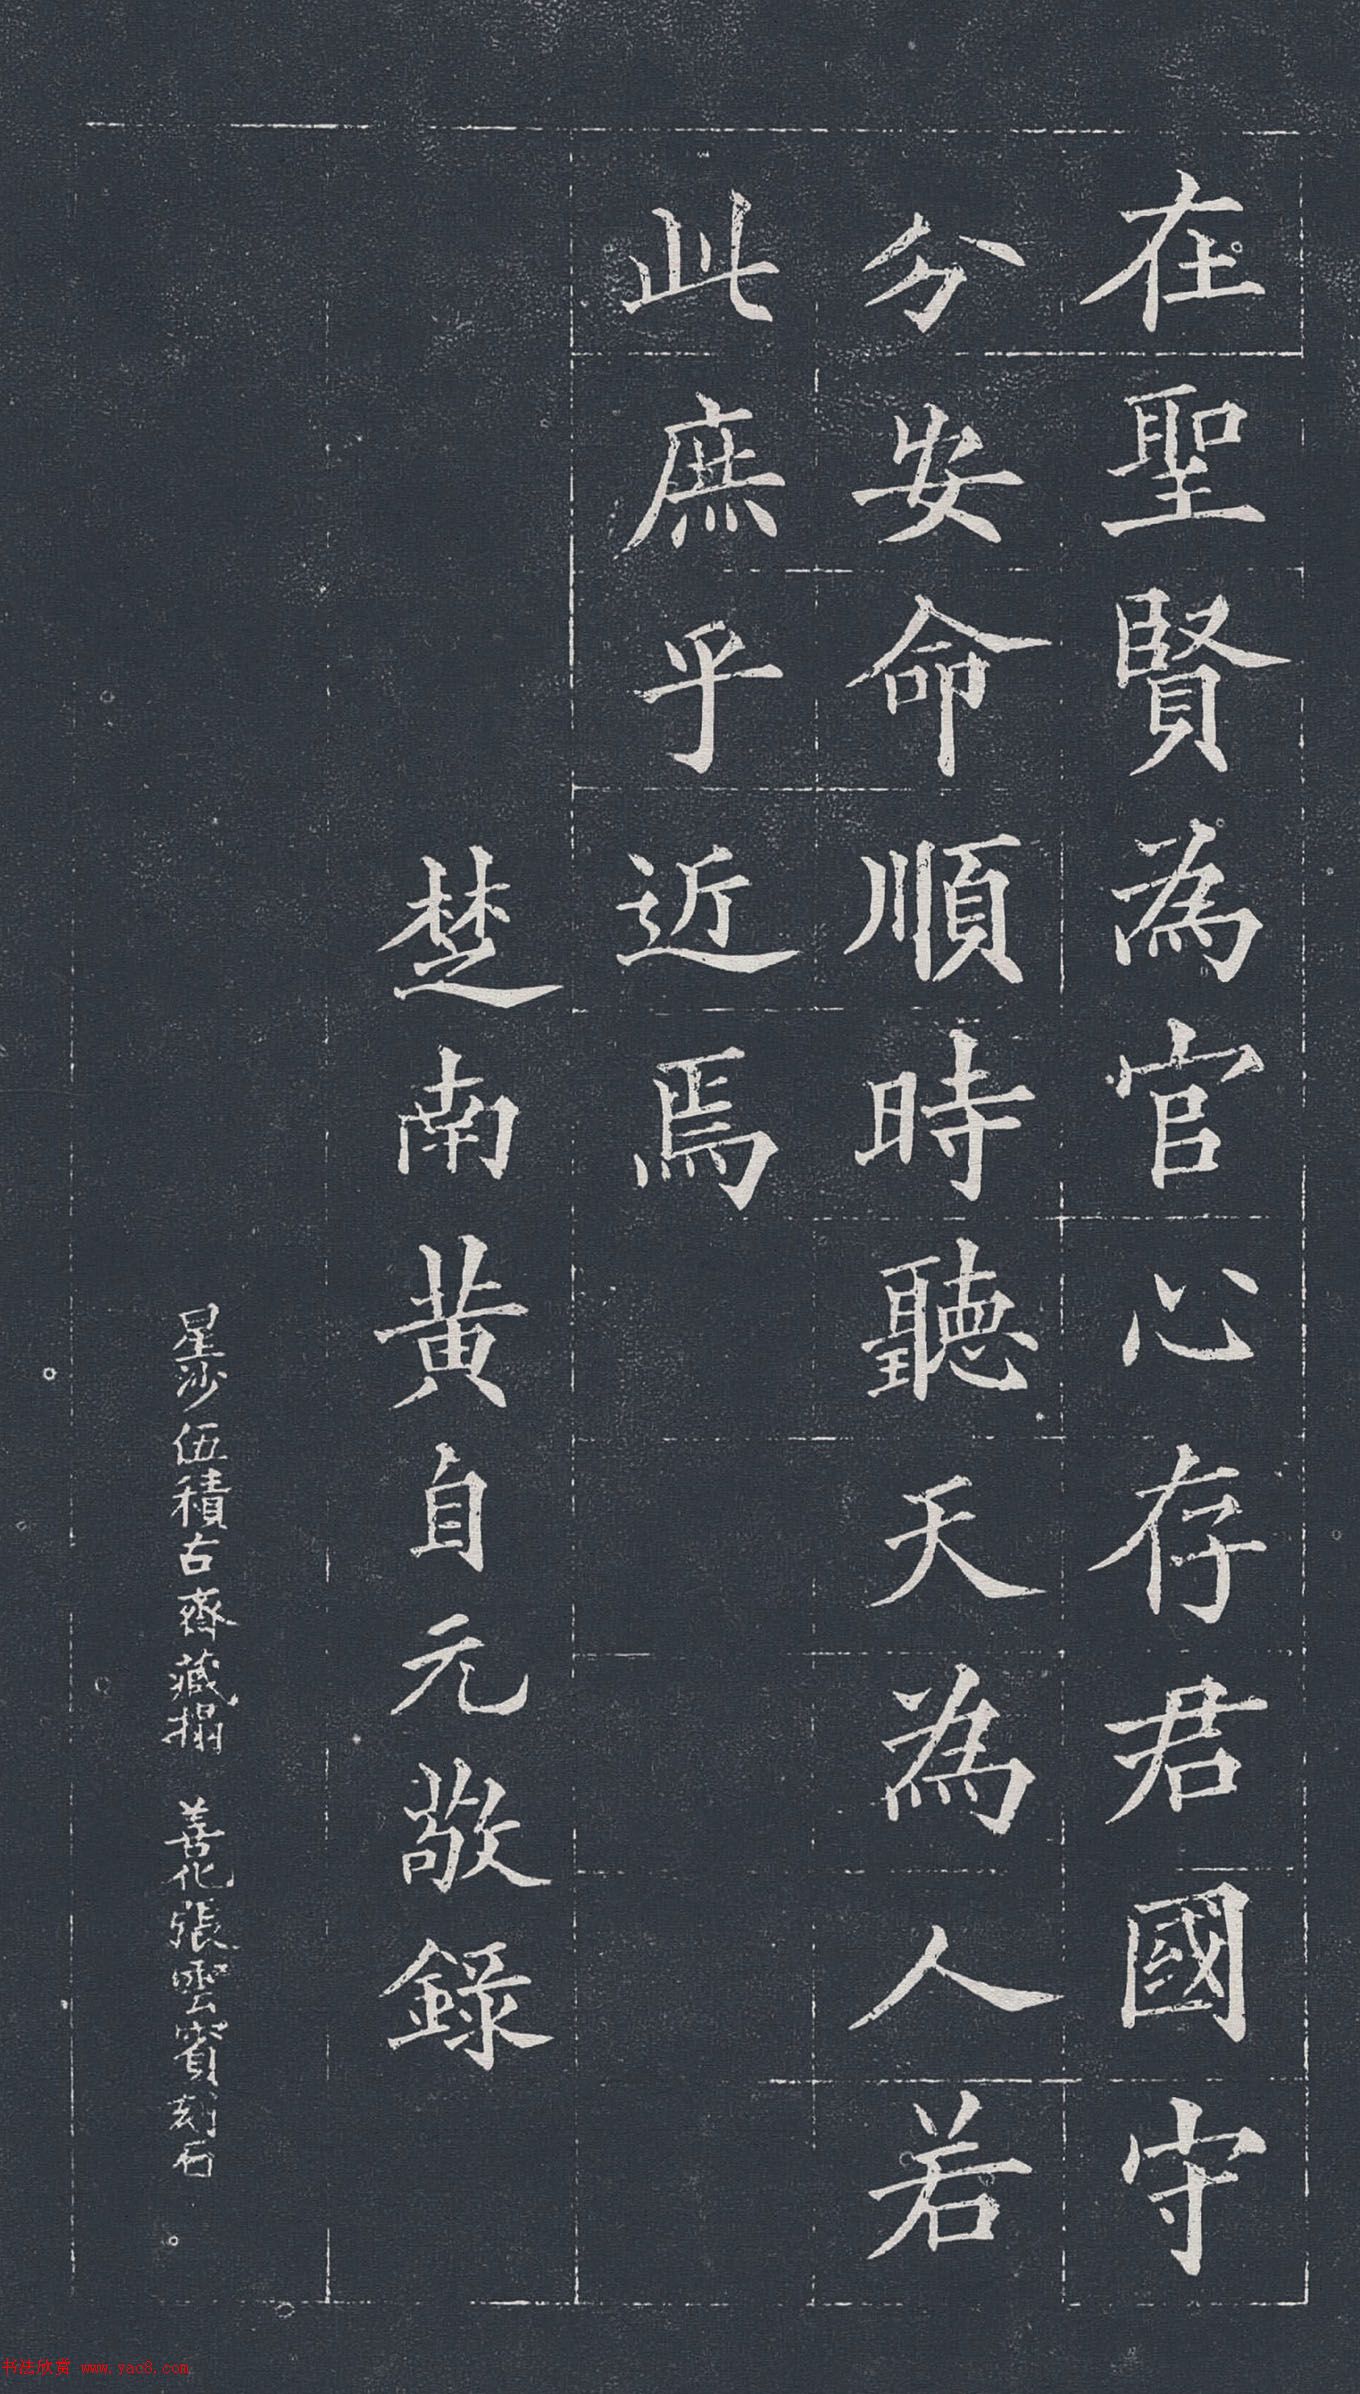 在聖賢為官心存君國守
分安命順時聽天為人若
此庶乎近焉
楚南黄自元敬錄
星沙伍積古齋藏搨 善化張雲賓刻石
书法欣赏 www.yac8.com